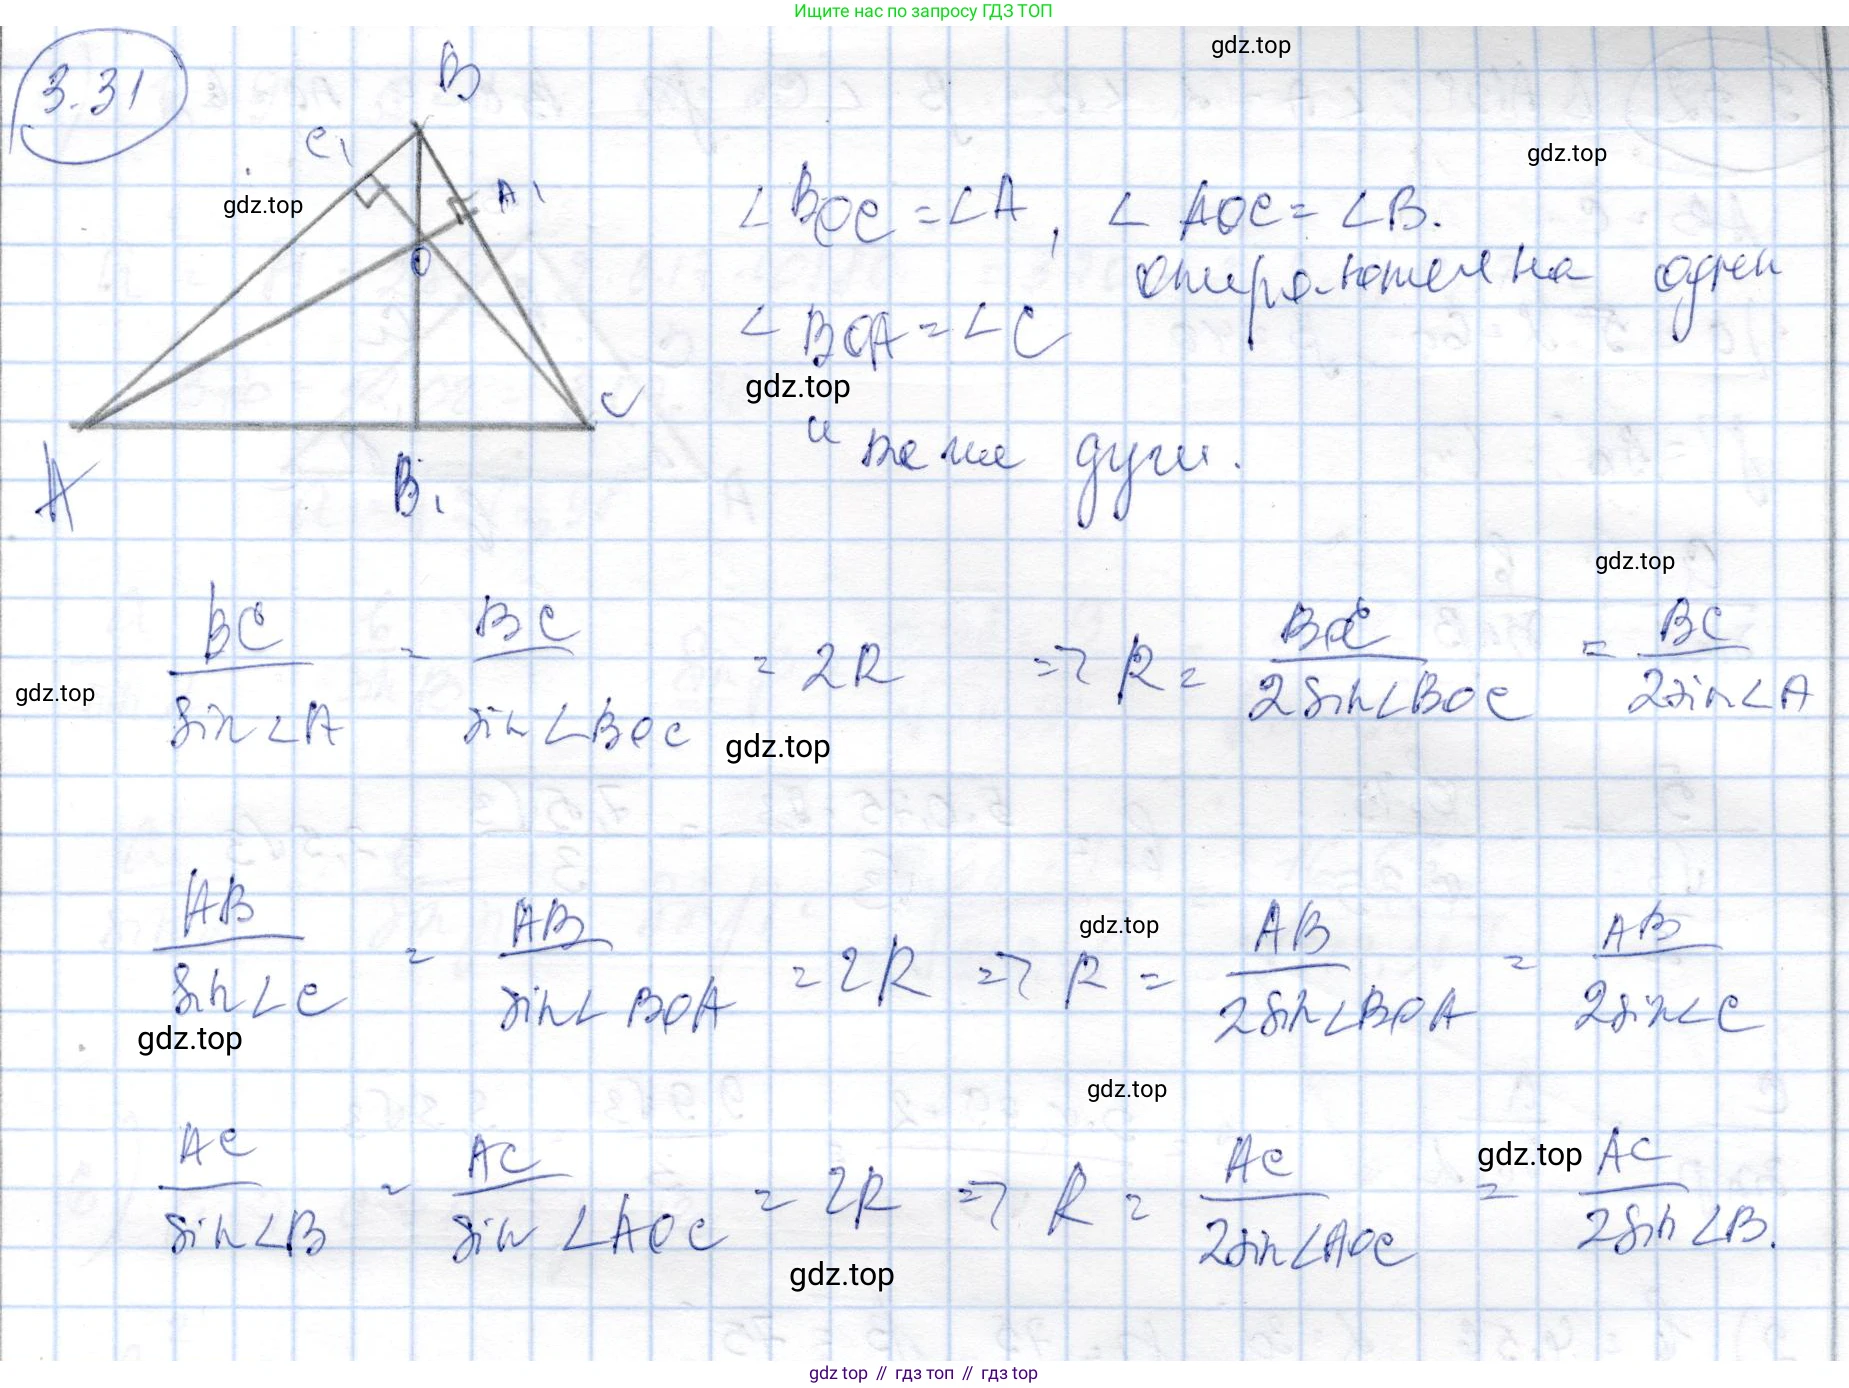 Ищите нас по запросу ГДЗ ТОП
3.31
gdz.top
B
C₁
A₁
O
A
B₁
C
gdz.top
gdz.top
∠BOC = ∠A, ∠AOC = ∠B.
опираются на одни
∠BOA = ∠C
gdz.top
и те же дуги.
gdz.top
BC/sin∠A = BC/sin∠BOC = 2R => R = BC/2sin∠BOC = BC/2sin∠A
gdz.top
gdz.top
gdz.top
AB/sin∠C = AB/sin∠BOA = 2R => R = AB/2sin∠BOA = AB/2sin∠C
gdz.top
gdz.top
gdz.top
AC/sin∠B = AC/sin∠AOC = 2R => R = AC/2sin∠AOC = AC/2sin∠B.
gdz.top
gdz top // гдз топ // гдз top